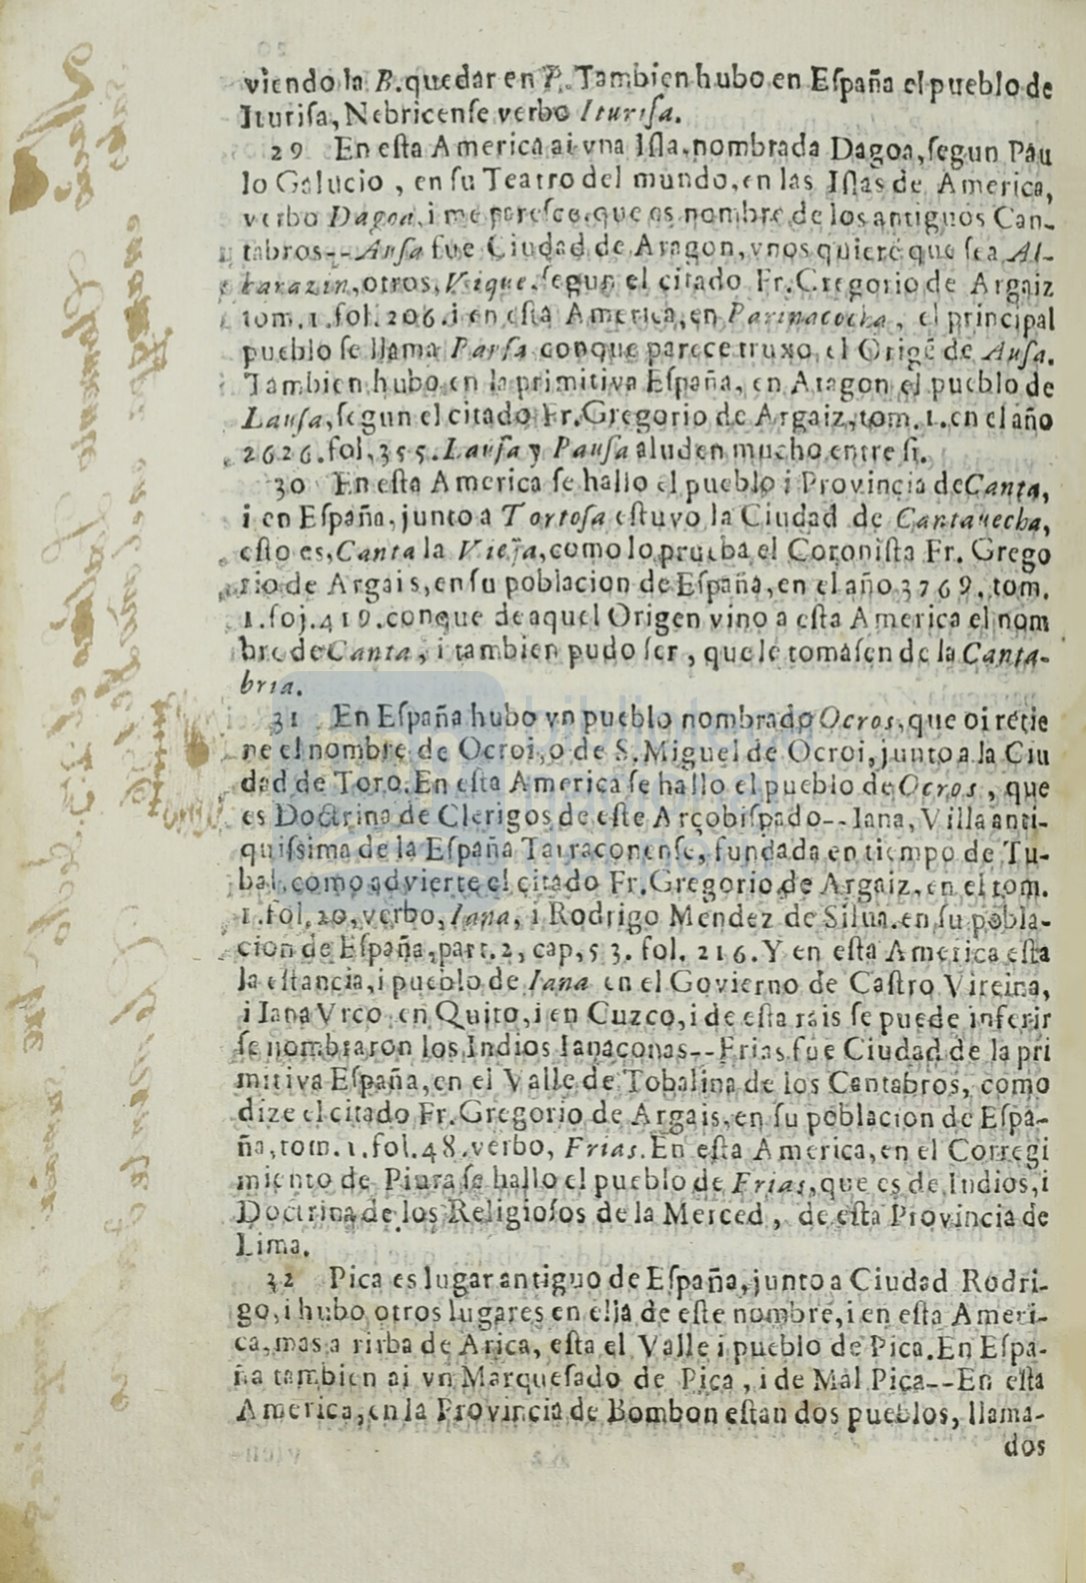 viendo la B. quedar en P. Tambien hubo en Eſpaña el pueblo de
Iturifa, Nebricenſe verbo Iturıſa.
29 En eſta America ai vna Iſla, nombrada Dagoa, ſegun Pau
lo Galucio, en ſu Teatro del mundo, en las Iſlas de America,
verbo Dagoa, i me pareſce, que es nombre de los antiguos Can-
tabros--Auſa fue Ciudad de Aragon, vnos quierē que ſea Al-
barazin, otros, Vique, ſegun el citado Fr. Gregorio de Argaiz
tom. 1. fol. 206. i en eſta America, en Parinacocha, el principal
pueblo ſe llama Pauſa conque parece truxo el Origē de Auſa.
Tambien hubo en la primitiva Eſpaña, en Aragon el pueblo de
Lauſa, ſegun el citado Fr. Gregorio de Argaiz, tom. 1. en el año
2626. fol. 355. Lauſa y Pauſa aluden mucho entre ſi.
30 En eſta America ſe hallo el pueblo i Provincia de Canta,
i en Eſpaña, junto a Tortoſa eſtuvo la Ciudad de Cantavecha,
eſto es, Canta la Vieja, como lo prueba el Coroniſta Fr. Grego
rio de Argais, en ſu poblacion de Eſpaña, en el año 3769. tom.
1. foj. 419. conque de aquel Origen vino a eſta America el nom
bre de Canta, i tambien pudo ſer, que le tomaſen de la Canta-
bria.
31 En Eſpaña hubo vn pueblo nombrado Ocros, que oi retie
ne el nombre de Ocroi, o de S. Miguel de Ocroi, junto a la Ciu
dad de Toro. En eſta America ſe hallo el pueblo de Ocros, que
es Doctrina de Clerigos de eſte Arçobiſpado--Iana, Villa anti-
quiſsima de la Eſpaña Tarraconenſe, fundada en tiempo de Tu-
bal, como advierte el citado Fr. Gregorio de Argaiz, en el tom.
1. fol. 20, verbo, Iana, i Rodrigo Mendez de Silua, en ſu pobla-
cion de Eſpaña, part. 2, cap, 53. fol. 216. Y en eſta America eſta
la eſtancia, i pueblo de Iana en el Govierno de Caſtro Vireina,
i Iana Vrco en Quito, i en Cuzco, i de eſta rais ſe puede inferir
ſe nombraron los Indios Ianaconas--Frias fue Ciudad de la pri
mitiva Eſpaña, en el Valle de Tobalina de los Cantabros, como
dize el citado Fr. Gregorio de Argais, en ſu poblacion de Eſpa-
ña, tom. 1. fol. 48. verbo, Frias. En eſta America, en el Corregi
miento de Piura ſe hallo el pueblo de Frias, que es de Indios, i
Doctrina de los Religioſos de la Merced, de eſta Provincia de
Lima.
32 Pica es lugar antiguo de Eſpaña, junto a Ciudad Rodri-
go, i hubo otros lugares en ella de eſte nombre, i en eſta Ameri-
ca, mas a rirba de Arica, eſta el Valle i pueblo de Pica. En Eſpa-
ña tambien ai vn Marqueſado de Pica, i de Mal Pica--En eſta
America, en la Provincia de Bombon eſtan dos pueblos, llama-
dos